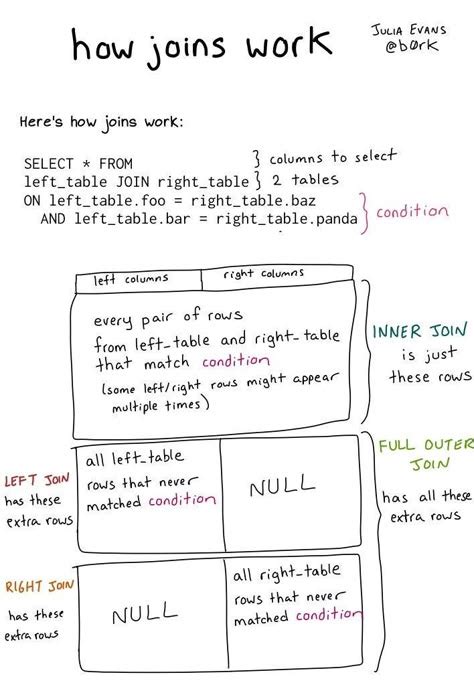 how joins work
JULIA EVANS
@b0rk
Here's how joins work:
SELECT * FROM } columns to select
left_table JOIN right_table } 2 tables
ON left_table.foo = right_table.baz
AND left_table.bar = right_table.panda } condition
left columns
right columns
every pair of rows
from left_table and right_table
that match condition
(some left/right rows might appear
multiple times)
INNER JOIN
is just
these rows
LEFT JOIN
has these
extra rows
all left_table
rows that never
matched condition
NULL
FULL OUTER
JOIN
has all these
extra rows
RIGHT JOIN
has these
extra rows
NULL
all right_table
rows that never
matched condition